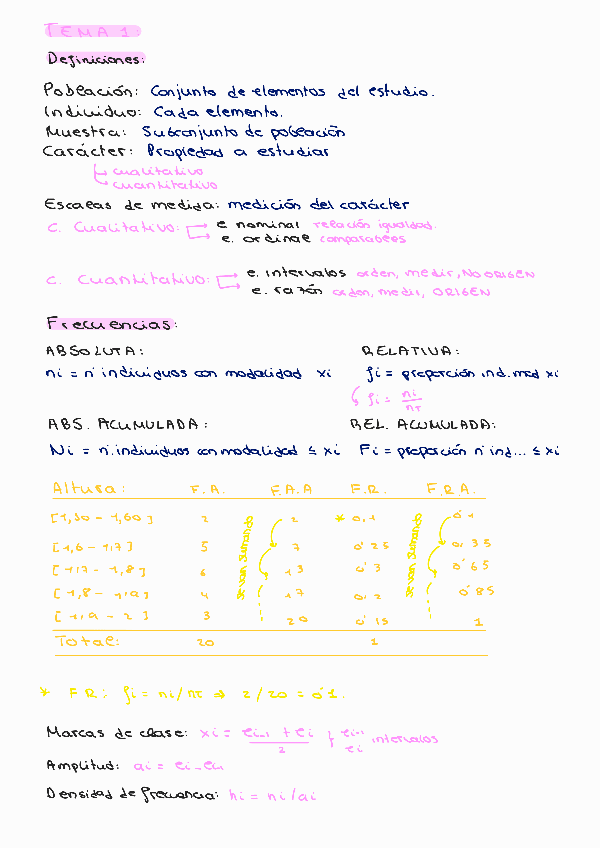 TEMA 1
Definiciones:
Población: Conjunto de elementos del estudio.
Individuo: Cada elemento.
Muestra: Subconjunto de población
Carácter: Propiedad a estudiar
cualitativo
cuantitativo
Escalas de medida: medición del carácter
C. Cualitativo: e. nominal relación igualdad.
e. ordinal comparables
C. Cuantitativo: e. intervalos orden, medir, NO ORIGEN
e. razón orden, medir, ORIGEN
Frecuencias:
ABSOLUTA: RELATIVA:
ni = nº individuos con modalidad xi fi = proporción ind. mod xi
fi = ni/nT
ABS. ACUMULADA: REL. ACUMULADA:
Ni = nº individuos con modalidad ≤ xi Fi = proporción nº ind... ≤ xi
Altura: F.A. F.A.A F.R. F.R.A.
[1,50 - 1,60] 2 2 * 0,1 0'1
[1,6 - 1,7] 5 7 0'25 0,35
[1,7 - 1,8] 6 13 0'3 0'65
[1,8 - 1,9] 4 17 0,2 0'85
[1,9 - 2] 3 20 0'15 1
se van sumando
se van sumando
Total: 20 1
* FR: fi = ni/nT ⇒ 2/20 = 0'1.
Marcas de clase: xi = ei-1 + ei / 2 } ei-1 ei intervalos
Amplitud: ai = ei - ei-1
Densidad de frecuencia: hi = ni/ai